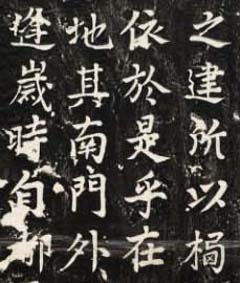 之建所以
依於是乎在
地其南門外
逢歲時自